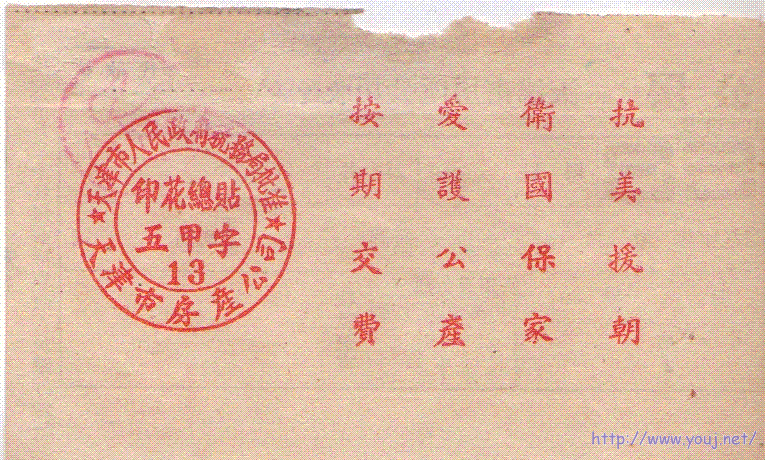 抗美援朝
衛國保家
愛護公產
按期交費
天津市人民政府稅務局批准
印花總貼
五甲字
13
天津市房產公司
http://www.youj.net/